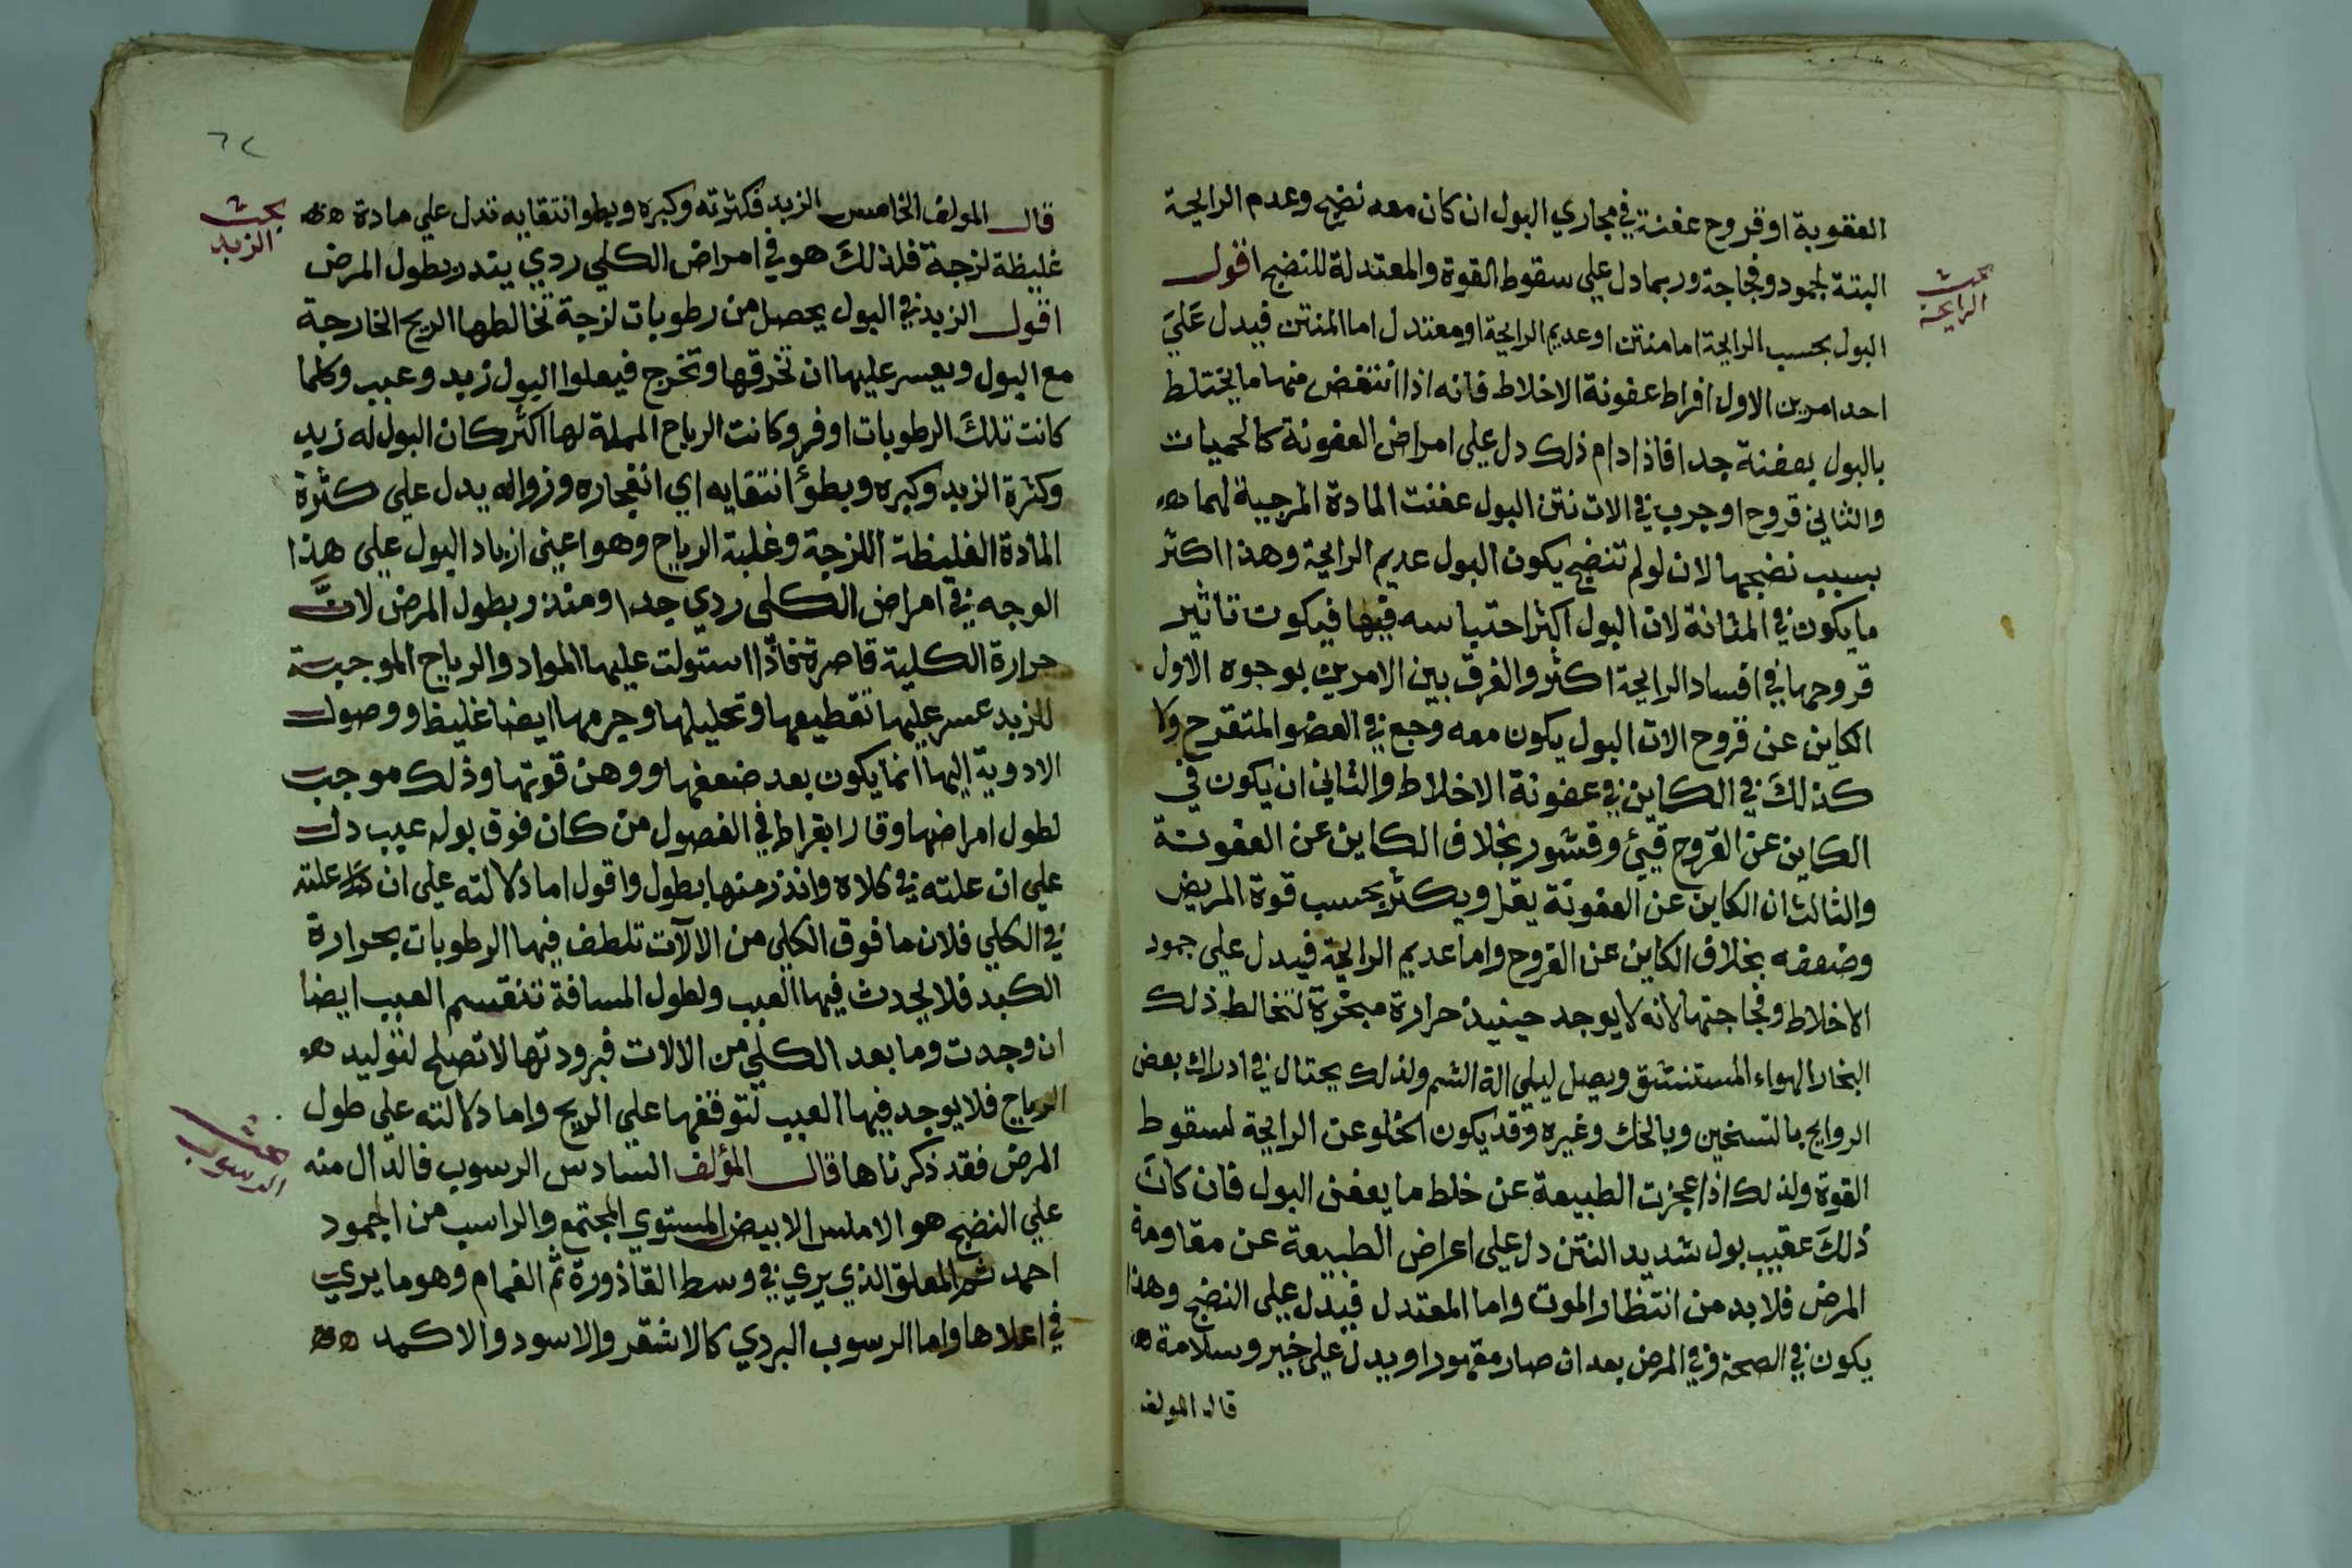 العفونة او قروح عفنة في مجاري البول ان كان معه نضج وعدم الرايحة
البتة لجمود وفجاجة وربما دل علي سقوط القوة والمعتدلة للنضج اقول
بحث
الرايحة
البول بحسب الرايحة اما منتن او عديم الرايحة او معتدل اما المنتن فيدل علي
احد امرين الاول افراط عفونة الاخلاط فانه اذا انتفض منها ما يختلط
بالبول بعفنة جدا فاذا دام ذلك دل علي امراض العفونة كالحميات
والثاني قروح او جرب في الات نتن البول عفنت المادة الموجبة لهما
بسبب نضجها لان لو لم تنضج يكون البول عديم الرايحة وهذا اكثر
ما يكون في المثانة لان البول اكثر احتباسه فيها فيكون تاثير
قروحها في افساد الرايحة اكثر والفرق بين الامرين بوجوه الاول
الكاين عن قروح الات البول يكون معه وجع في العضو المتقرح ولا
كذلك في الكاين في عفونة الاخلاط والثاني ان يكون في
الكاين عن القروح قيئ وقشور بخلاف الكاين عن العفونة
والثالث ان الكاين عن العفونة يقل ويكثر بحسب قوة المريض
وضعفه بخلاف الكاين عن القروح واما عديم الرايحة فيدل علي جمود
الاخلاط وفجاجتها لانه لا يوجد حينيذ حرارة مبخرة لتخالط ذلك
البخار الهواء المستنشق ويصل ليلي الة الشم ولذلك يحتال في ادراك بعض
الروايح بالتسخين وبالحك وغيره وقد يكون الخلو عن الرايحة لسقوط
القوة ولذلك اذا عجزت الطبيعة عن خلط ما يعفن البول فان كان
ذلك عقيب بول شديد النتن دل علي اعراض الطبيعة عن مقاومة
المرض فلا بد من انتظار الموت واما المعتدل فيدل علي النضج وهذا
يكون في الصحة وفي المرض بعد ان صار مقهورا ويدل علي خير وسلامة
قال المولف
٦٢
قال المولف الخامس الزبد فكثرته وكبره وبطو انتقايه تدل علي مادة
بحث
الزبد
غليظة لزجة فلذلك هو في امراض الكلي ردي ينذر بطول المرض
اقول الزبد في البول يحصل من رطوبات لزجة تخالطها الريح الخارجة
مع البول ويعسر عليها ان تخرقها وتخرج فيعلوا البول زبد وعبب وكلما
كانت تلك الرطوبات اوفر وكانت الرياح المملة لها اكثر كان البول له زبد
وكثرة الزبد وكبره وبطؤ انتقايه اي انفجاره وزواله يدل علي كثرة
المادة الغليظة اللزجة وغلبة الرياح وهو اعني ازباد البول علي هذا
الوجه في امراض الكلي ردي جدا ومنذر بطول المرض لان
حرارة الكلية قاصرة فاذا استولت عليها المواد والرياح الموجبة
للزبد عسر عليها تقطيعها وتحليلها وجرمها ايضا غليظ ووصول
الادوية اليها انما يكون بعد ضعفها ووهن قوتها وذلك موجب
لطول امراضها وقال ابقراط في الفصول من كان فوق بوله عبب دل
علي ان علته في كلاه وانذر منها بطول واقول اما دلالته علي ان علته
في الكلي فلان ما فوق الكلي من الالآت تلطف فيها الرطوبات بحرارة
الكبد فلا يحدث فيها العبب ولطول المسافة تنقسم العبب ايضا
ان وجدت وما بعد الكلي من الالات فبرودتها لا تصلح لتوليد
الرياح فلا يوجد فيها العبب لتوقفها علي الريح واما دلالته علي طول
المرض فقد ذكرناها قال المؤلف السادس الرسوب فالدال منه
بحث
الرسوب
علي النضج هو الاملس الابيض المستوي المجتمع والراسب من المجمود
احمد ثم المعلق الذي يري في وسط القاذورة ثم الغمام وهو ما يري
في اعلاها واما الرسوب البردي كالاشقر والاسود والاكمد